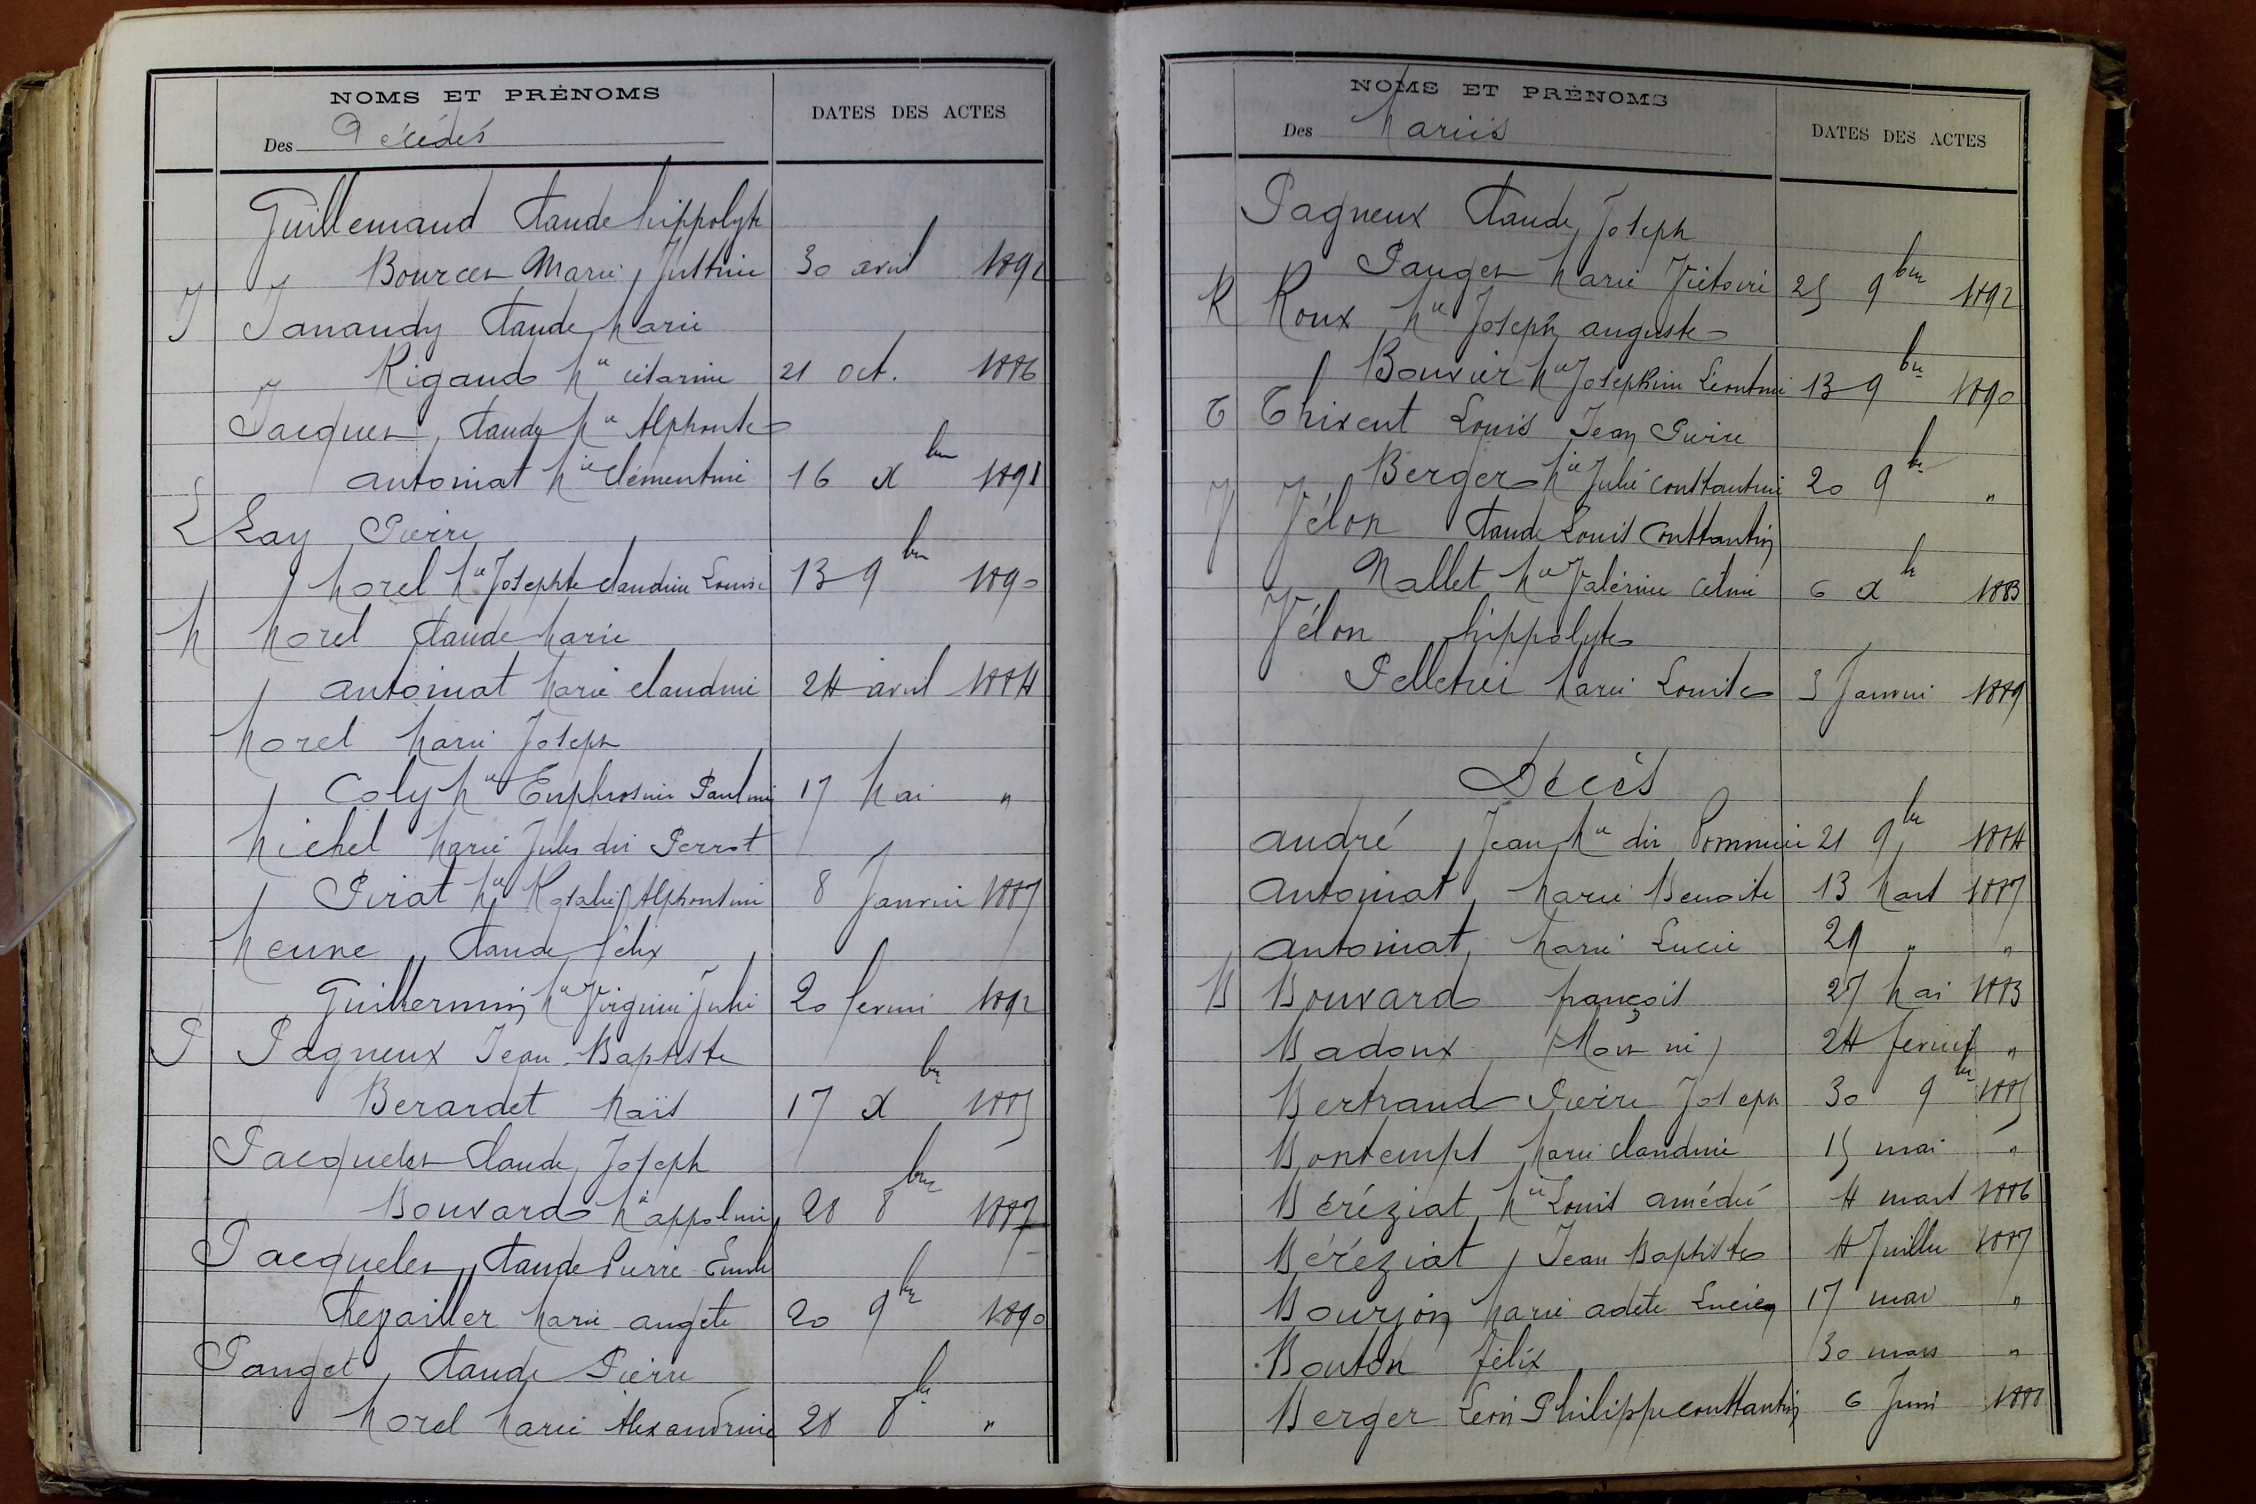 NOMS ET PRÉNOMS
Des Décédés
DATES DES ACTES
Guillemaud Claude hippolyte
Bourcet Marie Justine 30 avril 1892
J Janaudy Claude Marie
Rigaud Mie Césarine 21 oct. 1886
Jacquet, Claude Mie Alphonse
Antoinat Mie Clémentine 16 xbre 1891
L Lay Pierre
Morel Mie Josephte Claudine Louise 13 9bre 1890
M Morel Claude Marie
Antoinat Marie Claudine 24 avril 1884
Morel Marie Joseph
Coly Mie Euphrosine Pauline 17 Mai "
Michel Marie Jules dit Perrot
Pirat Mie Rosalie Alphonsine 8 Janvier 1887
Meune, Claude félix
Guillermin Mie Virginie Julie 20 fevrier 1892
P Pagneux Jean Baptiste
Berardet Maïs 17 xbre 1885
Pacquelet Claude, Joseph
Bouvard Mie appoline 28 8bre 1887
Pacquelet, Claude Pierre Emile
Chevailler Marie angele 20 9bre 1890
Panget, Claude Pierre
Morel Marie Alexandrine 28 8bre "
NOMS ET PRÉNOMS
Des Mariés
DATES DES ACTES
Pagneux Claude, Joseph
Panget Marie Victoire 25 9bre 1892
R Roux Mie Joseph auguste
Bouvier Mie Josephine Léontine 13 9bre 1890
T Thixent Louis Jean Pierre
Berger Mie Julie constantine 20 9bre "
V Vélon Claude Louis Constantin
Nallet Mie Valérine Celine 6 xbre 1883
Vélon hippolyte
Pelletier Marie Louise 3 Janvier 1889
Décès
andré, Jean Mie dit Pommier 21 9bre 1884
Antoinat, Marie Benoite 13 Mars 1887
Antoinat, Marie Lucie 29 " "
B Bouvard françois 27 Mai 1883
Badoux (Mort né) 24 fevrier "
Bertrand Pierre Joseph 30 9bre 1885
Bontemps Marie claudine 15 mai "
Béréziat, Mie Louis amédée 4 mars 1886
Béréziat, Jean Baptiste 4 Juillet 1887
Bourjon Marie adele Lucien 17 mai "
Bouton félix 30 mars "
Berger Léon Philippe constantin 6 Juin 1888